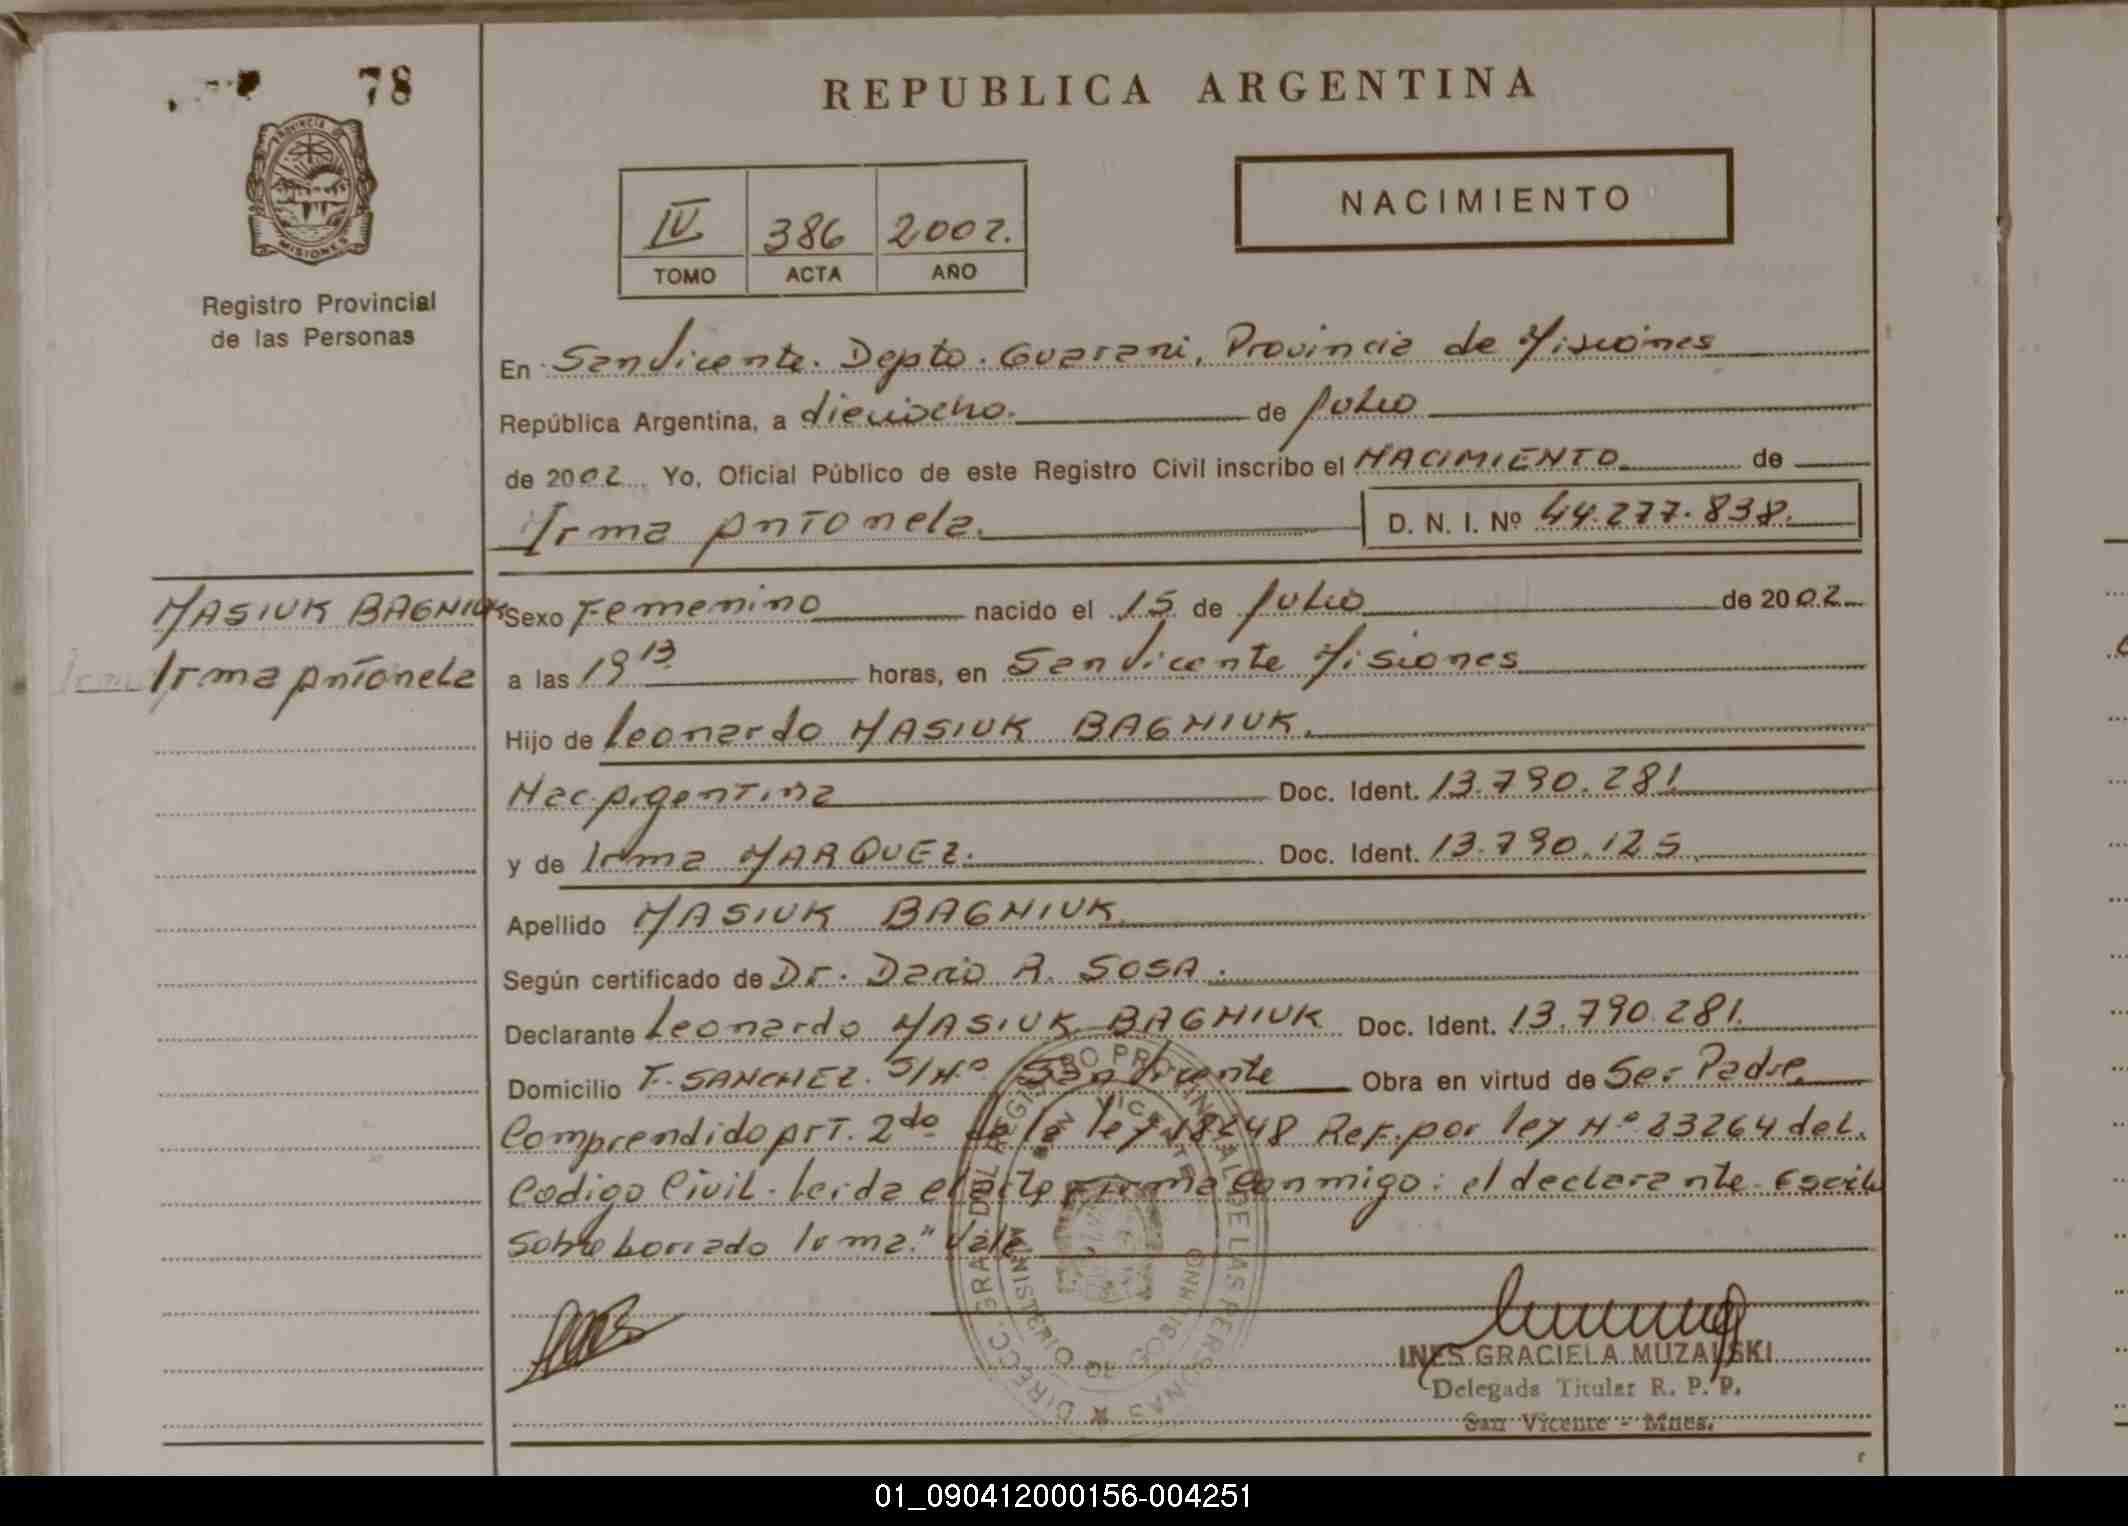 78
REPUBLICA ARGENTINA
PROVINCIA DE
MISIONES
Registro Provincial
de las Personas
IV 386 2002.
TOMO ACTA AÑO
NACIMIENTO
En San Vicente. Depto. Guarani, Provincia de Misiones
República Argentina, a dieciocho. de Julio
de 2002 Yo, Oficial Público de este Registro Civil inscribo el NACIMIENTO de
Irma Antonela. D. N. I. Nº 44.277.838.
MASIUK BAGNIUK
Irma Antonela
Sexo Femenino nacido el 15 de Julio de 2002
a las 19 13 horas, en San Vicente Misiones
Hijo de Leonardo MASIUK BAGNIUK.
Nac. Argentina Doc. Ident. 13.790.281
y de Irma MARQUEZ. Doc. Ident. 13.790.125
Apellido MASIUK BAGNIUK
Según certificado de Dr. Dario A. SOSA.
Declarante Leonardo MASIUK BAGNIUK Doc. Ident. 13.790.281.
Domicilio F. SANCHEZ. S/Nº San Vicente Obra en virtud de Ser Padre.
Comprendido Art. 2do de la ley 18248 Ref. por ley Nº 23264 del.
Codigo Civil. Leida el acta firma conmigo: el declarante. Escrito
sobre borrado Irma." Vale
DIRECC. GRAL. DEL REGISTRO PROVINCIAL DE LAS PERSONAS
SAN VICENTE
MINISTERIO DE GOBIERNO
INES GRACIELA MUZALSKI
Delegada Titular R. P. P.
San Vicente - Mnes.
01_090412000156-004251